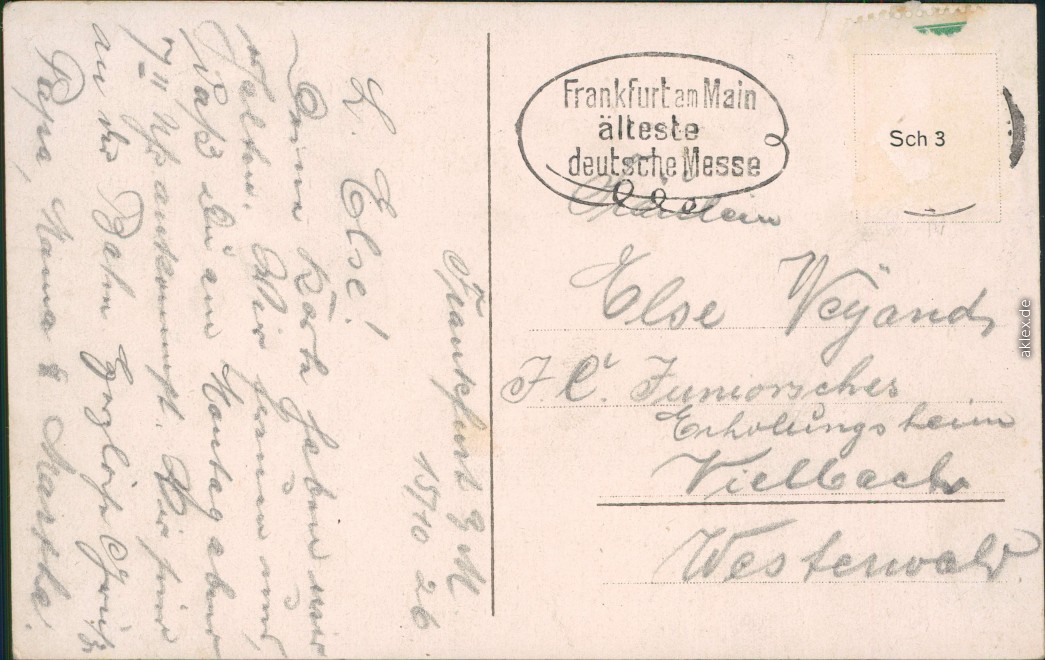 Frankfurt a/M.
15/10 26
L. Else!
Deine Karte haben wir
erhalten. Wir freuen uns,
daß Du am Montag abend
7 11 Uhr ankommst. Wir sind
an der Bahn Herzliche Grüße
Papa, Mama & Martha.
Frankfurt am Main
älteste
deutsche Messe
Sch 3
Fräulein
Else Weyand,
J. C. Juniorsches
Erholungsheim
Vielbach
Westerwald
aklex.de